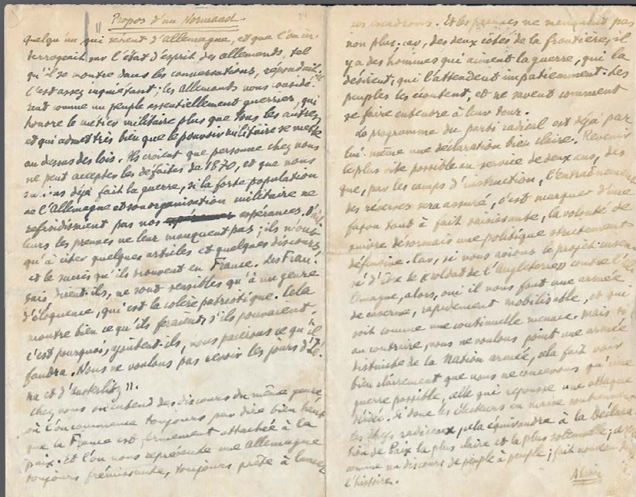 Propos d'un Normand
quelqu'un qui revient d'Allemagne, et que l'on in-
terrogeait sur l'état d'esprit des allemands, tel
qu'il se montre dans les conversations, répondait
C'est assez inquiétant; les Allemands nous considè-
rent comme un peuple essentiellement guerrier, qui
honore le métier militaire plus que tous les autres,
et qui admet très bien que le pouvoir militaire se mette
au dessus des lois. Ils croient que personne chez nous
ne peut accepter les défaites de 1870, et que nous
aurions déjà fait la guerre, si la forte population
de l'Allemagne et son organisation militaire ne
refroidissaient pas nos espérances. D'ail
leurs les preuves ne leur manquent pas; ils n'ont
qu'à citer quelques articles et quelques discours,
et le succès qu'ils trouvent en France. Les Fran-
çais, disent-ils, ne sont sensibles qu'à un genre
d'éloquence, qui est la colère patriotique. Cela
montre bien ce qu'ils feraient, s'ils pouvaient
c'est pourquoi, ajoutent-ils, nous paierons ce qu'il
faudra. Nous ne voulons pas revoir les jours d'Ié-
na et d'Austerlitz".
Chez nous on entend des discours du même genre,
où l'on commence toujours par dire bien haut
que la France est fermement attachée à la
paix. Et l'on nous représente une Allemagne
toujours frémissante, toujours prête à lancer
ses escadrons. Et les preuves ne manquent pas
non plus. car, des deux côtés de la frontière, il
y a des hommes qui aiment la guerre, qui la
désirent, qui l'attendent impatiemment. Les
peuples les écoutent, et ne savent comment
se faire entendre à leur tour.
Le programme du parti radical est déjà par
lui-même une déclaration bien claire. Revenir
le plus vite possible au service de deux ans, dès
que, par les camps d'instruction, l'entraînement
des réserves sera assuré, c'est marquer d'une
façon tout à fait saisissante, la volonté de
suivre désormais une politique strictement
défensive. Car, si nous avions le projet
d'être le soldat de l'Angleterre contre l'Al
lemagne, alors, oui il nous faut une armée
de caserne, rapidement mobilisable, et qui
soit comme une continuelle menace. mais si
au contraire, nous ne voulons point une armée
distincte de la Nation armée, cela fait voir
bien clairement que nous ne concevons qu'une
guerre possible, celle qui repousse une attaque
décidée. Si donc les électeurs en masse
les chefs radicaux, cela équivaudra à la Déclara
tion de Paix la plus claire et la plus solennelle;
comme un discours de peuple à peuple; fait nouveau dans
l'histoire.
Alain